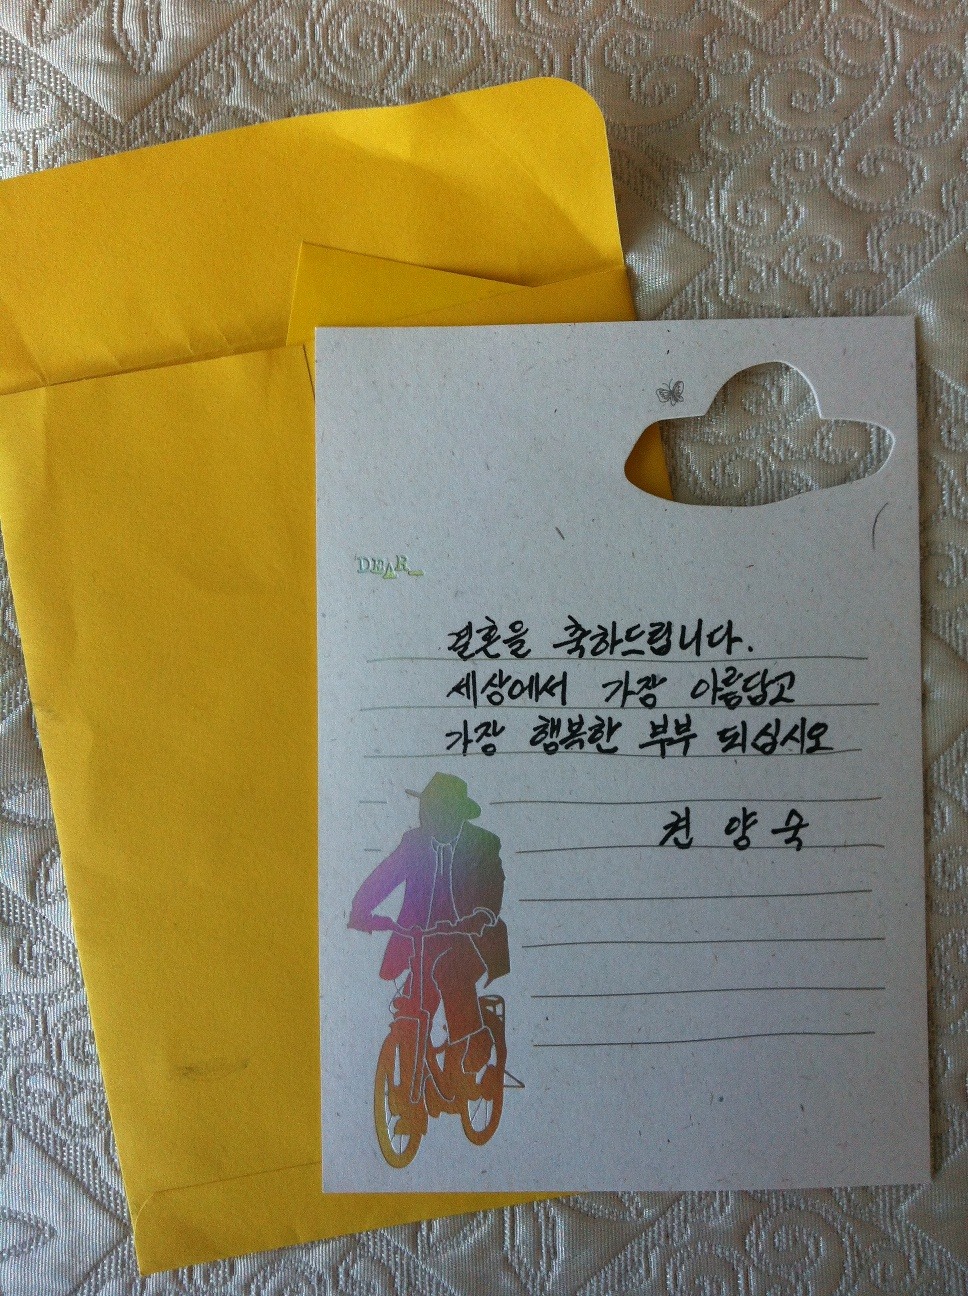 DEAR_
결혼을 축하드립니다.
세상에서 가장 아름답고
가장 행복한 부부 되십시오
권 양 숙